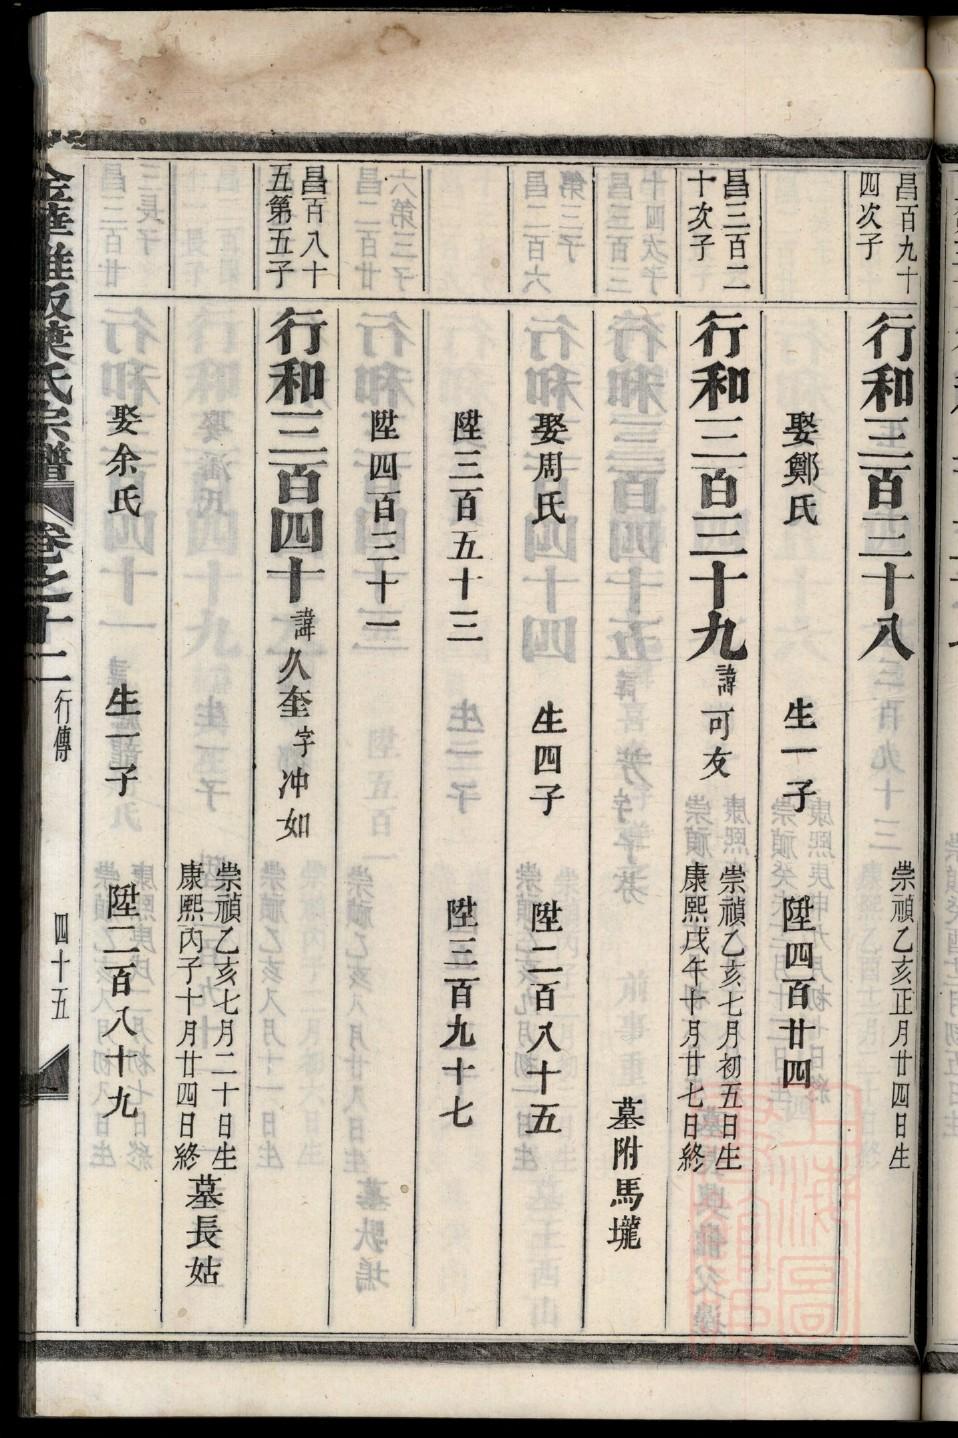 昌百九十
四次子
行和三百三十八
崇禎乙亥正月廿四日生
娶鄭氏
生一子
陞四百廿四
昌三百二
十次子
行和三百三十九
諱可友
崇禎乙亥七月初五日生
康熙戊午十月廿七日終
墓附馬壠
娶周氏
生四子
陞二百八十五
陞三百五十三
陞三百九十七
陞四百三十一
昌百八十
五第五子
行和三百四十
諱久奎字冲如
崇禎乙亥七月二十日生
康熙丙子十月廿四日終
墓長姑
娶余氏
生一子
陞二百八十九
葉氏宗譜
卷之十二
行傳
四十五